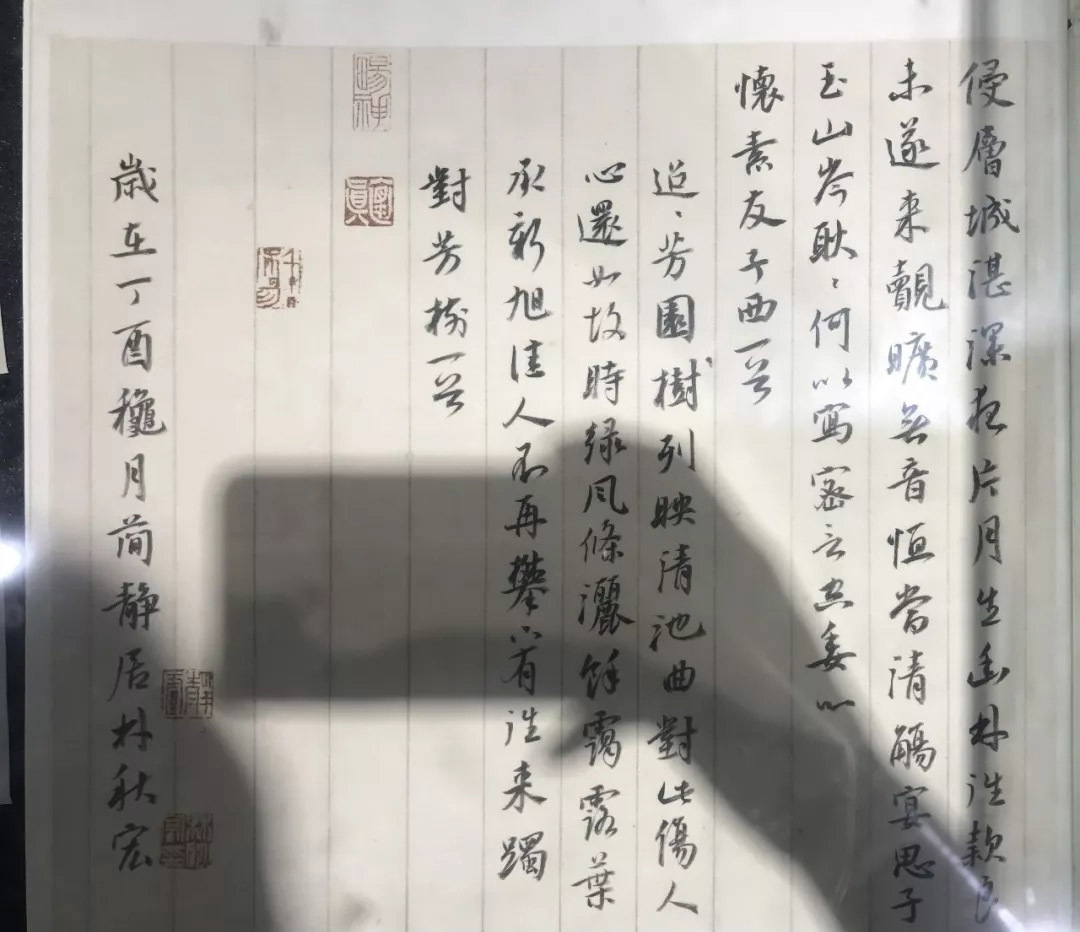 侵層城湛深夜片月生幽林往款良
未遂来覿曠無音恒當清觴宴思子
玉山岑耿々何以寫密言空委心
懷素友子西一首
迢々芳園樹列映清池曲對此傷人
心還如故時緑风條灑餘靄露葉
承新旭佳人不再攀下有往来躅
對芳樹一首
歲在丁酉龝月简静居林秋宏